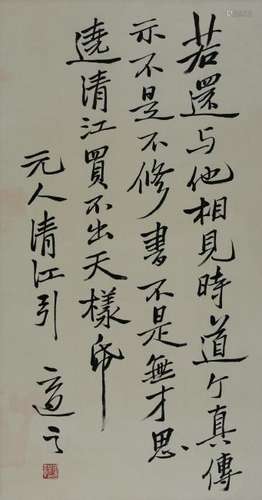 若還与他相見時道个真傳
示不是不修書不是無才思
遶清江買不出天樣帋
元人清江引 適之